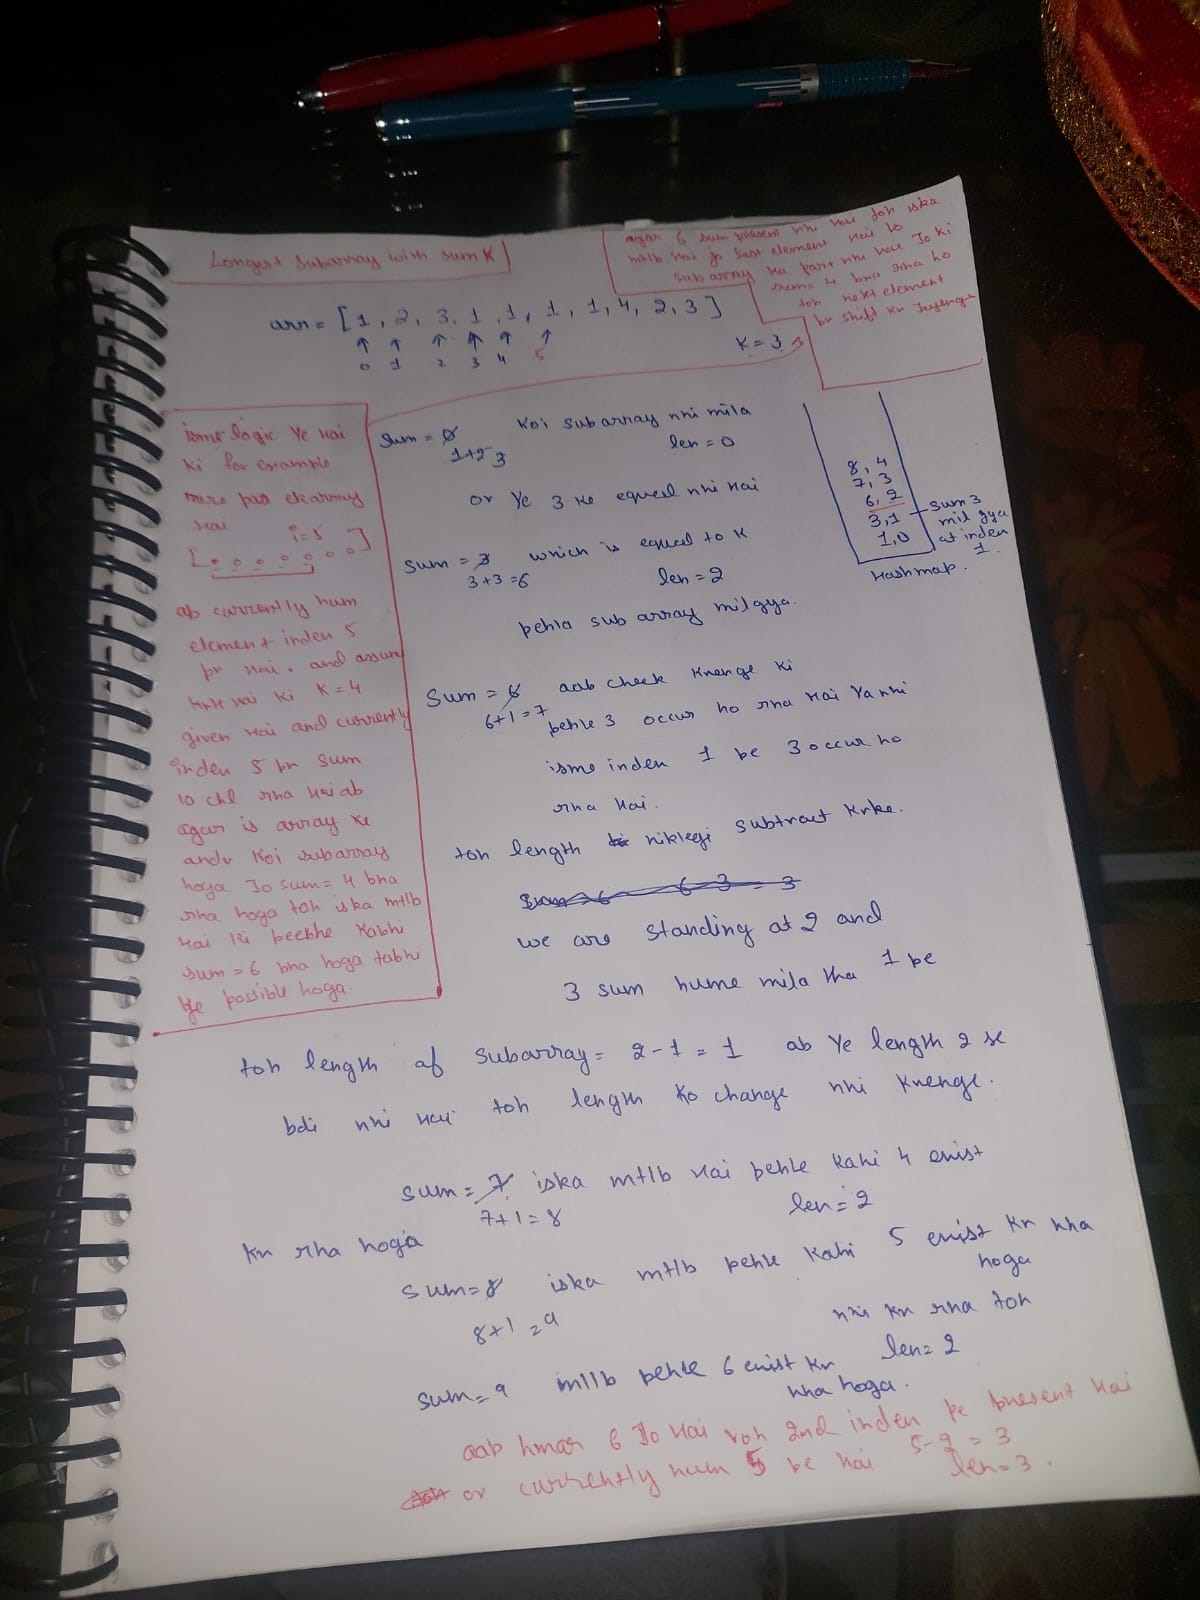 Longest subarray with sum K
agar 6 sum present nhi hai toh iska
mtlb hai jo last element hai vo
sub array ka part nhi hai Jo ki
sum= 4 bna rha ho
toh next element
pr shift kr jayenge
arr = [1, 2, 3, 1, 1, 1, 1, 4, 2, 3]
0 1 2 3 4 5
K = 3
isme logic Ye hai
ki for example
mere pas ek array
hai
i=5
[0 0 0 0 0 0 0]
ab currently hum
element index 5
pr hai. and assume
krte hai ki K = 4
given hai and currently
index 5 pr sum
10 chl rha hai ab
agar is array ke
andr koi subarray
hoga Jo sum= 4 bna
rha hoga toh iska mtlb
hai ki peekhe kabhi
sum = 6 bna hoga tabhi
ye possible hoga.
Sum = 0 Koi subarray nhi mila
1+2 3 len = 0
or Ye 3 ke equal nhi hai
Sum = 3 which is equal to K
3+3=6 len = 2
pehla sub array mil gya.
Sum = 6 aab check krenge ki
6+1=7 pehle 3 occur ho rha hai Ya nhi
isme index 1 pe 3 occur ho
rha hai.
toh length niklegi subtract krke.
Sum=6 6-3=3
we are standing at 2 and
3 sum hume mila tha 1 pe
8, 4
7, 3
6, 2
3, 1
1, 0
sum 3
mil gya
at index
1.
Hashmap.
toh length of subarray = 2-1 = 1 ab Ye length 2 se
bdi nhi hai toh length ko change nhi krenge.
sum = 7 iska mtlb hai pehle kahi 4 exist
7+1=8 len = 2
kr rha hoga
sum=8 iska mtlb pehle kahi 5 exist kr rha
hoga
8+1=9 nhi kr rha toh
len= 2
sum=9 mtlb pehle 6 exist kr
rha hoga.
aab hmar 6 Jo hai voh 2nd index pe present hai
or currently hum 5 pe hai 5-2 = 3
len=3.